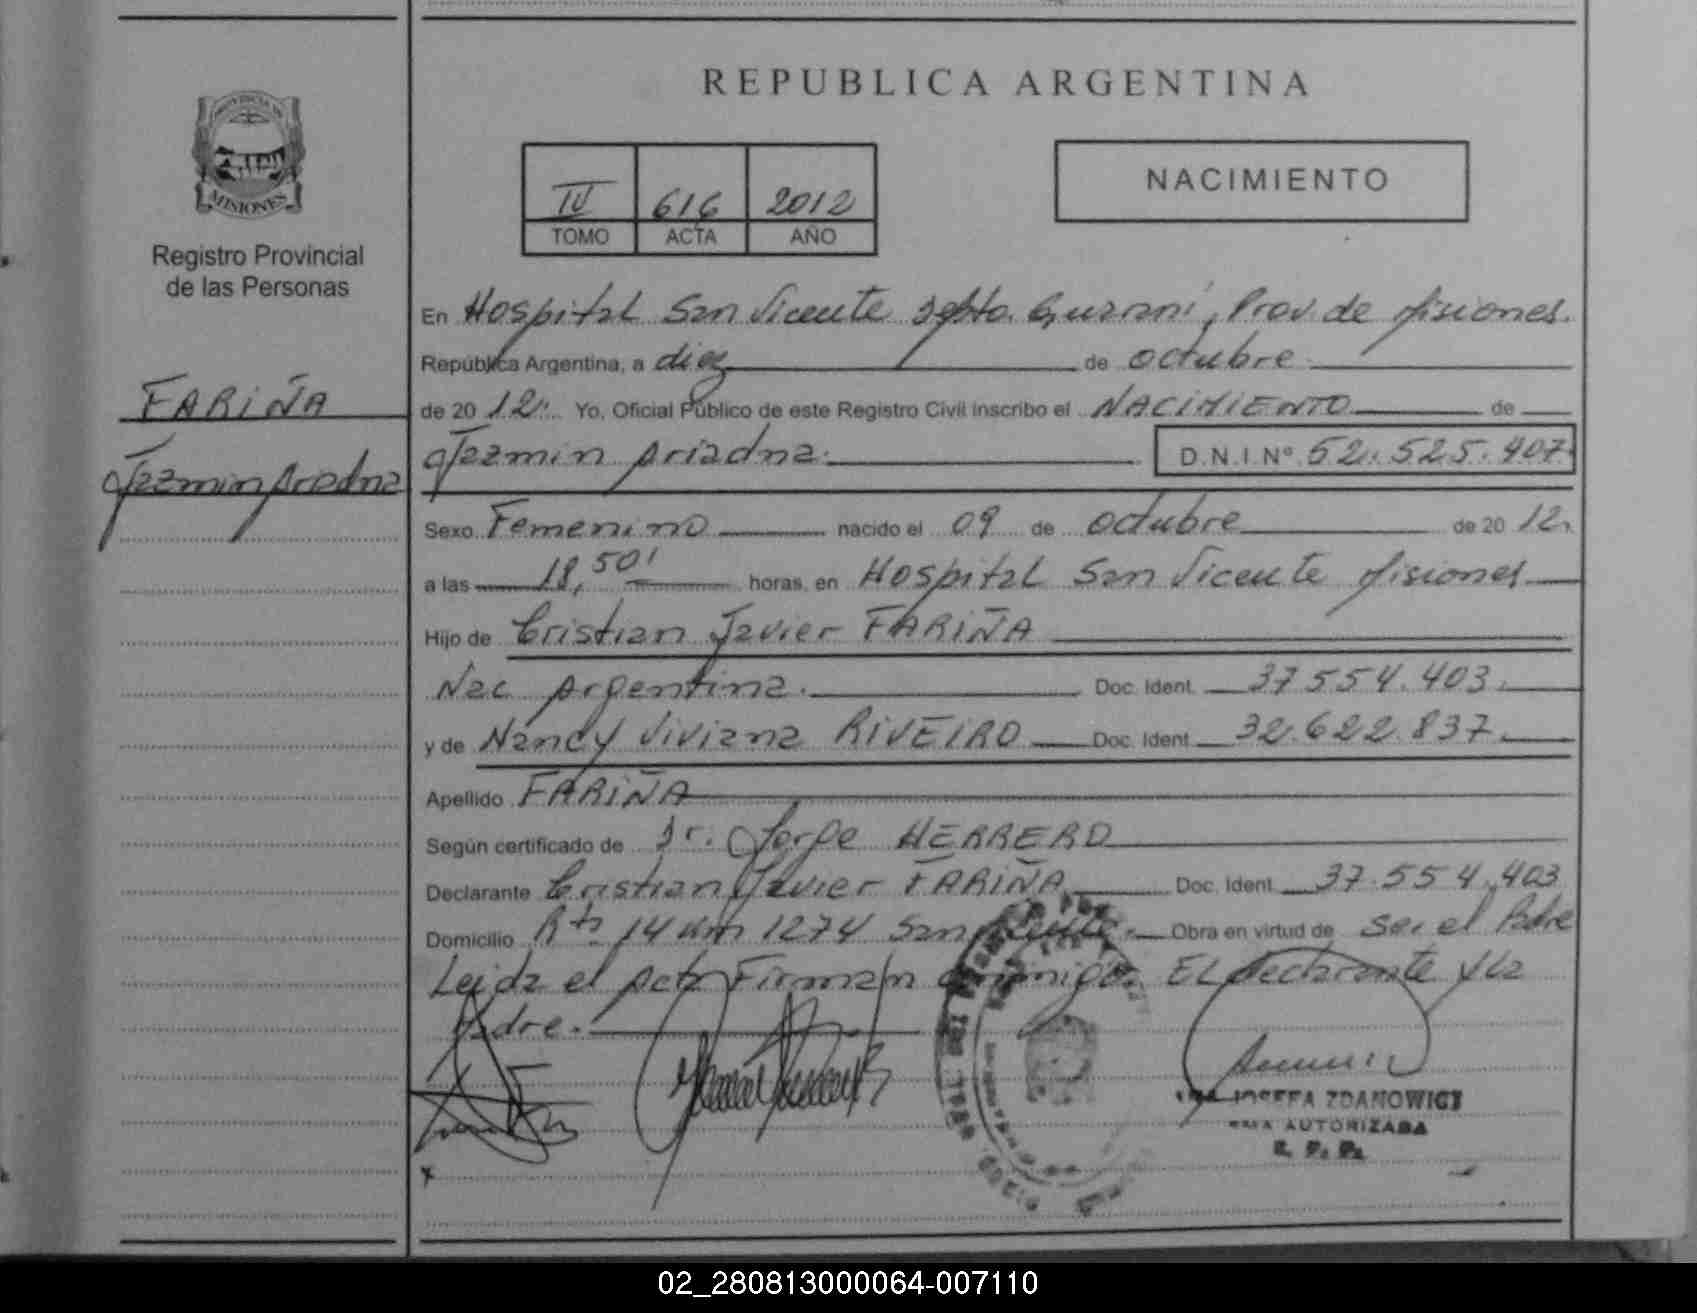 REPUBLICA ARGENTINA
PROVINCIA DE
MISIONES
Registro Provincial
de las Personas
IV 616 2012
TOMO ACTA AÑO
NACIMIENTO
FARIÑA
Jazmin Ariadna
En Hospital San Vicente Dpto. Guarani, Prov. de Misiones.
República Argentina, a diez de octubre
de 20 12. Yo, Oficial Público de este Registro Civil inscribo el NACIMIENTO de
Jazmin Ariadna. D.N.I.Nº 52.525.407
Sexo Femenino nacido el 09 de octubre de 20 12.
a las 18,50' horas, en Hospital San Vicente Misiones
Hijo de Cristian Javier FARIÑA
Nac Argentina. Doc. Ident. 37.554.403.
y de Nancy Viviana RIVEIRO Doc. Ident. 32.622.837.
Apellido FARIÑA
Según certificado de Dr. Jorge HERRERO
Declarante Cristian Javier FARIÑA Doc. Ident. 37.554.403
Domicilio Rta 14 Km 1274 San Vicente. Obra en virtud de ser el Padre
Leida el Acta Firman conmigo. El declarante y la
Madre.
JOSEFA ZDANOWICZ
AUTORIZADA
R. P. P.
02_280813000064-007110